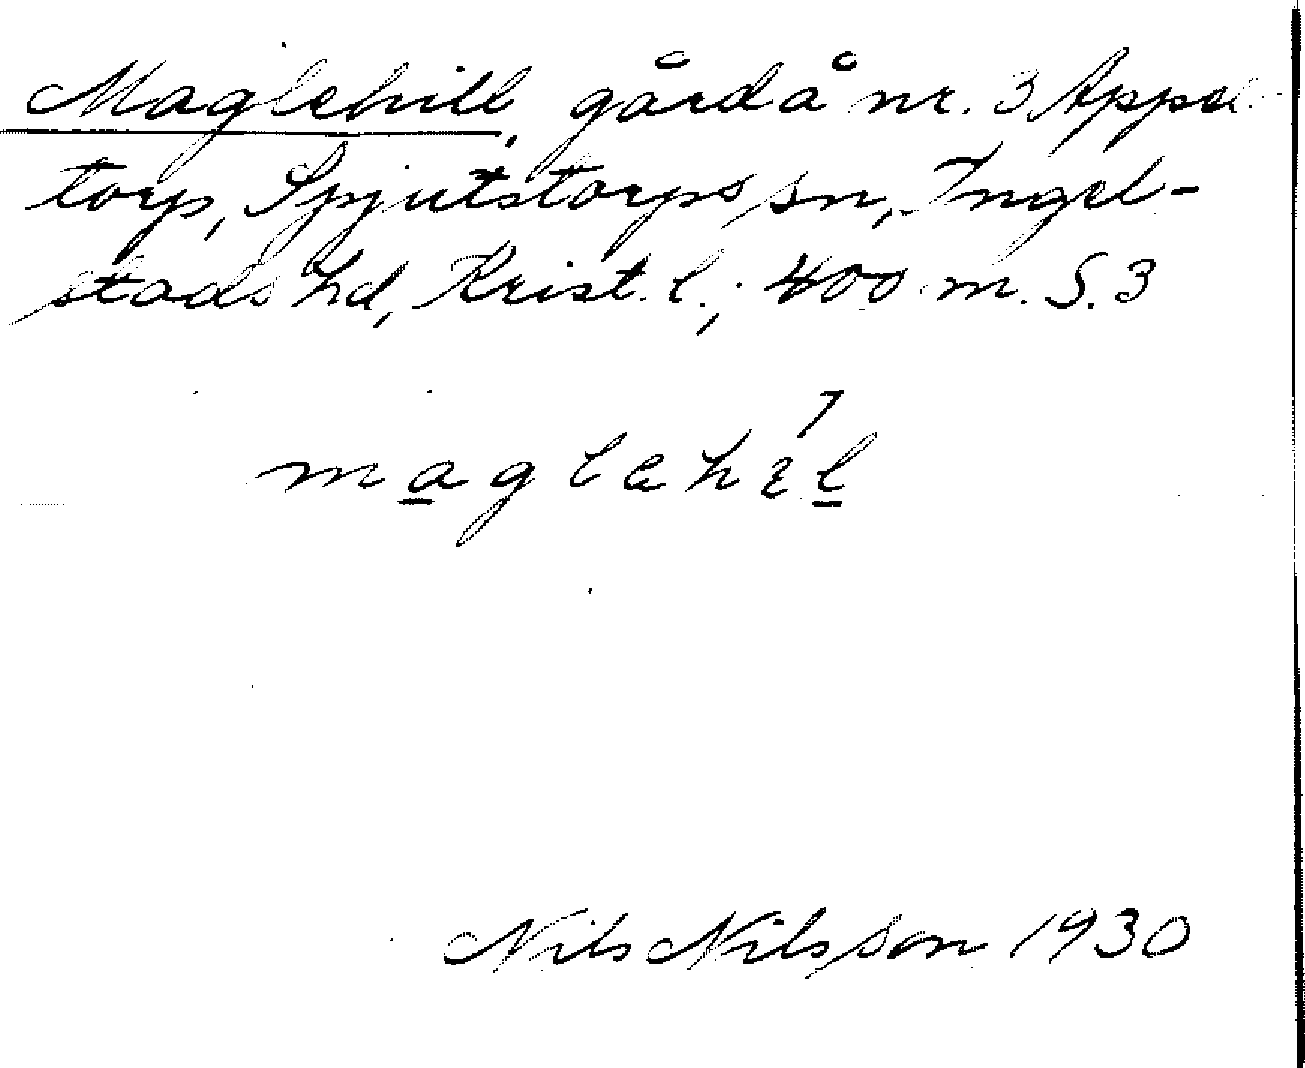 Maglehill, gård å nr. 3 Appel-
torp, Spjutstorps sn, Ingel-
stads hd, Krist. l.; 400 m. S. 3
Nils Nilsson 1930